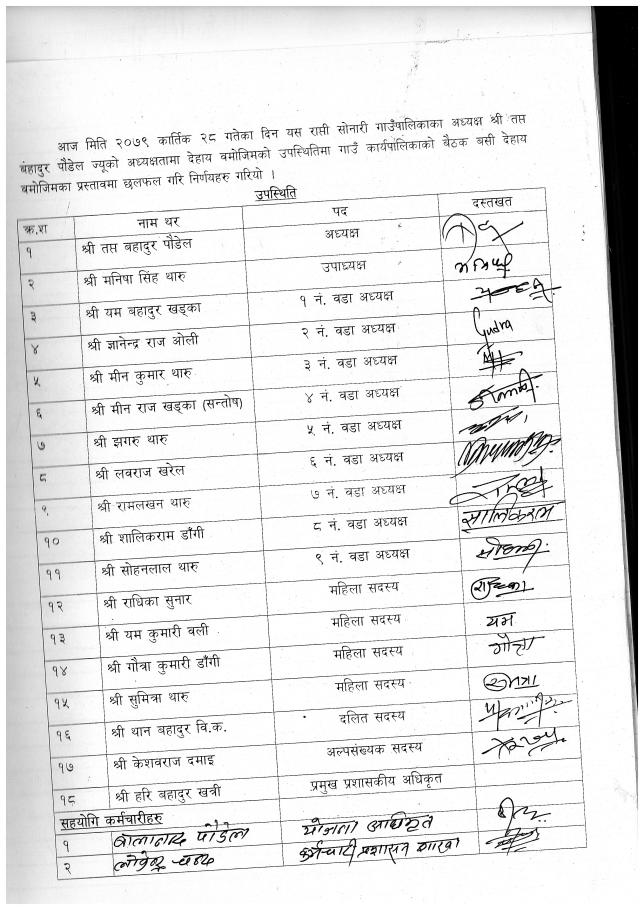 आज मिति २०७९ कार्तिक २८ गतेका दिन यस राप्ती सोनारी गाउँपालिकाका अध्यक्ष श्री तप्त
बहादुर पौडेल ज्यूको अध्यक्षतामा देहाय बमोजिमको उपस्थितिमा गाउँ कार्यपालिकाको बैठक बसी देहाय
बमोजिमका प्रस्तावमा छलफल गरि निर्णयहरु गरियो ।
उपस्थिति
क्र.श नाम थर पद दस्तखत
१ श्री तप्त बहादुर पौडेल अध्यक्ष
२ श्री मनिषा सिंह थारु उपाध्यक्ष
३ श्री यम बहादुर खड्का १ नं. वडा अध्यक्ष
४ श्री ज्ञानेन्द्र राज ओली २ नं. वडा अध्यक्ष
५ श्री मीन कुमार थारु ३ नं. वडा अध्यक्ष
६ श्री मीन राज खड्का (सन्तोष) ४ नं. वडा अध्यक्ष
७ श्री झगरु थारु ५ नं. वडा अध्यक्ष
८ श्री लवराज खरेल ६ नं. वडा अध्यक्ष
९ श्री रामलखन थारु ७ नं. वडा अध्यक्ष
१० श्री शालिकराम डाँगी ८ नं. वडा अध्यक्ष सालिकराम
११ श्री सोहनलाल थारु ९ नं. वडा अध्यक्ष
१२ श्री राधिका सुनार महिला सदस्य
१३ श्री यम कुमारी वली महिला सदस्य यम
१४ श्री गौत्रा कुमारी डाँगी महिला सदस्य
१५ श्री सुमित्रा थारु महिला सदस्य
१६ श्री थान बहादुर वि.क. दलित सदस्य
१७ श्री केशवराज दमाइ अल्पसंख्यक सदस्य
१८ श्री हरि बहादुर खत्री प्रमुख प्रशासकीय अधिकृत
सहयोगि कर्मचारीहरु
१ पौडेल योजना अधिकृत
२ कर्मचारी प्रशासन शाखा